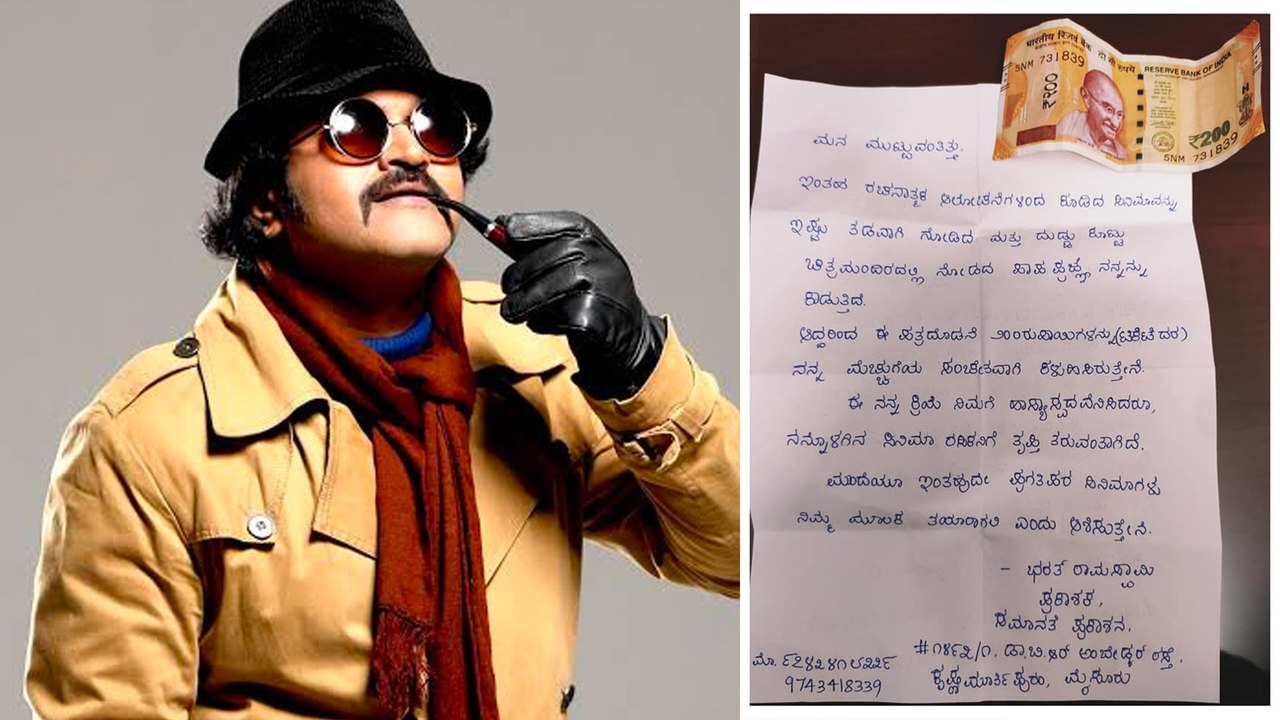 भारतीय रिज़र्व बैंक
दो सौ रुपये
RESERVE BANK OF INDIA
5NM 731839
₹२००
₹200
5NM 731839
ಮನ ಮುಟ್ಟುವಂತಿತ್ತು.
ಇಂತಹ ರಚನಾತ್ಮಕ ಆಲೋಚನೆಗಳಿಂದ ಕೂಡಿದ ಸಿನಿಮಾವನ್ನು
ಇಷ್ಟು ತಡವಾಗಿ ನೋಡಿದ ಮತ್ತು ದುಡ್ಡು ಕೊಟ್ಟು
ಚಿತ್ರಮಂದಿರದಲ್ಲಿ ನೋಡದ ಪಾಪಪ್ರಜ್ಞೆ ನನ್ನನ್ನು
ಕಾಡುತ್ತಿದೆ.
ಆದ್ದರಿಂದ ಈ ಪತ್ರದೊಡನೆ ೨೦೦ರುಪಾಯಿಗಳನ್ನು(ಟಿಕೆಟಿದರ)
ನನ್ನ ಮೆಚ್ಚುಗೆಯ ಸಂಕೇತವಾಗಿ ಕಳುಹಿಸಿರುತ್ತೇನೆ.
ಈ ನನ್ನ ಕ್ರಿಯೆ ನಿಮಗೆ ಹಾಸ್ಯಾಸ್ಪದವೆನಿಸಿದರೂ,
ನನ್ನೊಳಗಿನ ಸಿನಿಮಾ ರಸಿಕನಿಗೆ ತೃಪ್ತಿ ತರುವಂತಾಗಿದೆ.
ಮುಂದೆಯೂ ಇಂತಹುದೇ ಪ್ರಗತಿಪರ ಸಿನಿಮಾಗಳು
ನಿಮ್ಮ ಮೂಲಕ ತಯಾರಾಗಲಿ ಎಂದು ಆಶಿಸುತ್ತೇನೆ.
- ಭರತ್ ರಾಮಸ್ವಾಮಿ
ಪ್ರಕಾಶಕ,
ಸಮಾನತೆ ಪ್ರಕಾಶನ.
#೧೪೯೨/೧. ಡಾ.ಬಿ.ಆರ್ ಅಂಬೇಡ್ಕರ್ ರಸ್ತೆ,
ಕೃಷ್ಣಮೂರ್ತಿಪುರಂ, ಮೈಸೂರು
ಮೊ.
9743418339